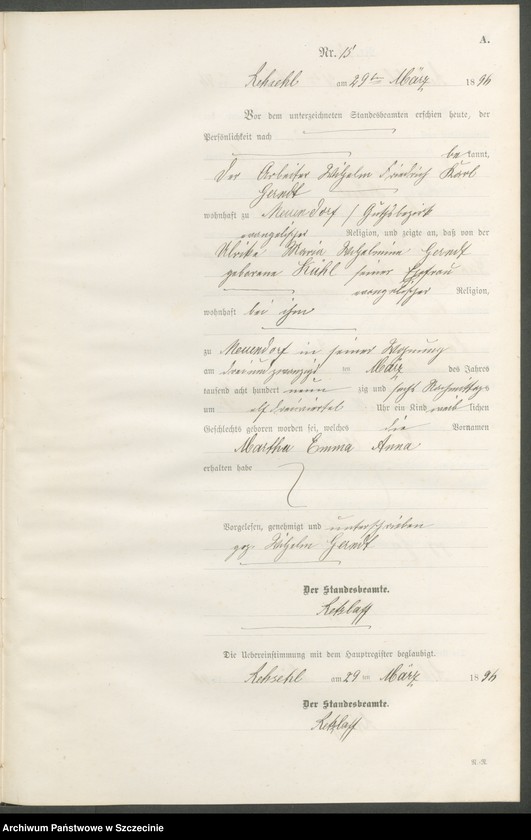 A.
Nr. 15
Rehsehl am 29ten März 1896
Vor dem unterzeichneten Standesbeamten erschien heute, der
Persönlichkeit nach
bekannt,
der Arbeiter Wilhelm Friedrich Karl
Gerndt
wohnhaft zu Neuendorf / Gutsbezirk
evangelischer Religion, und zeigte an, daß von der
Ulrike Maria Wilhelmine Gerndt
geborene Kühl seiner Ehefrau
evangelischer Religion,
wohnhaft bei ihm
zu Neuendorf in seiner Wohnung
am dreiundzwanzigst ten März des Jahres
tausend acht hundert neun zig und sechs Nachmittags
um elf dreiviertel Uhr ein Kind weib lichen
Geschlechts geboren worden sei, welches die Vornamen
Martha Emma Anna
erhalten habe
Vorgelesen, genehmigt und unterschrieben
gez. Wilhelm Gerndt
Der Standesbeamte.
Retzlaff
Die Uebereinstimmung mit dem Hauptregister beglaubigt.
Rehsehl am 29 ten März 1896
Der Standesbeamte.
Retzlaff
Archiwum Państwowe w Szczecinie